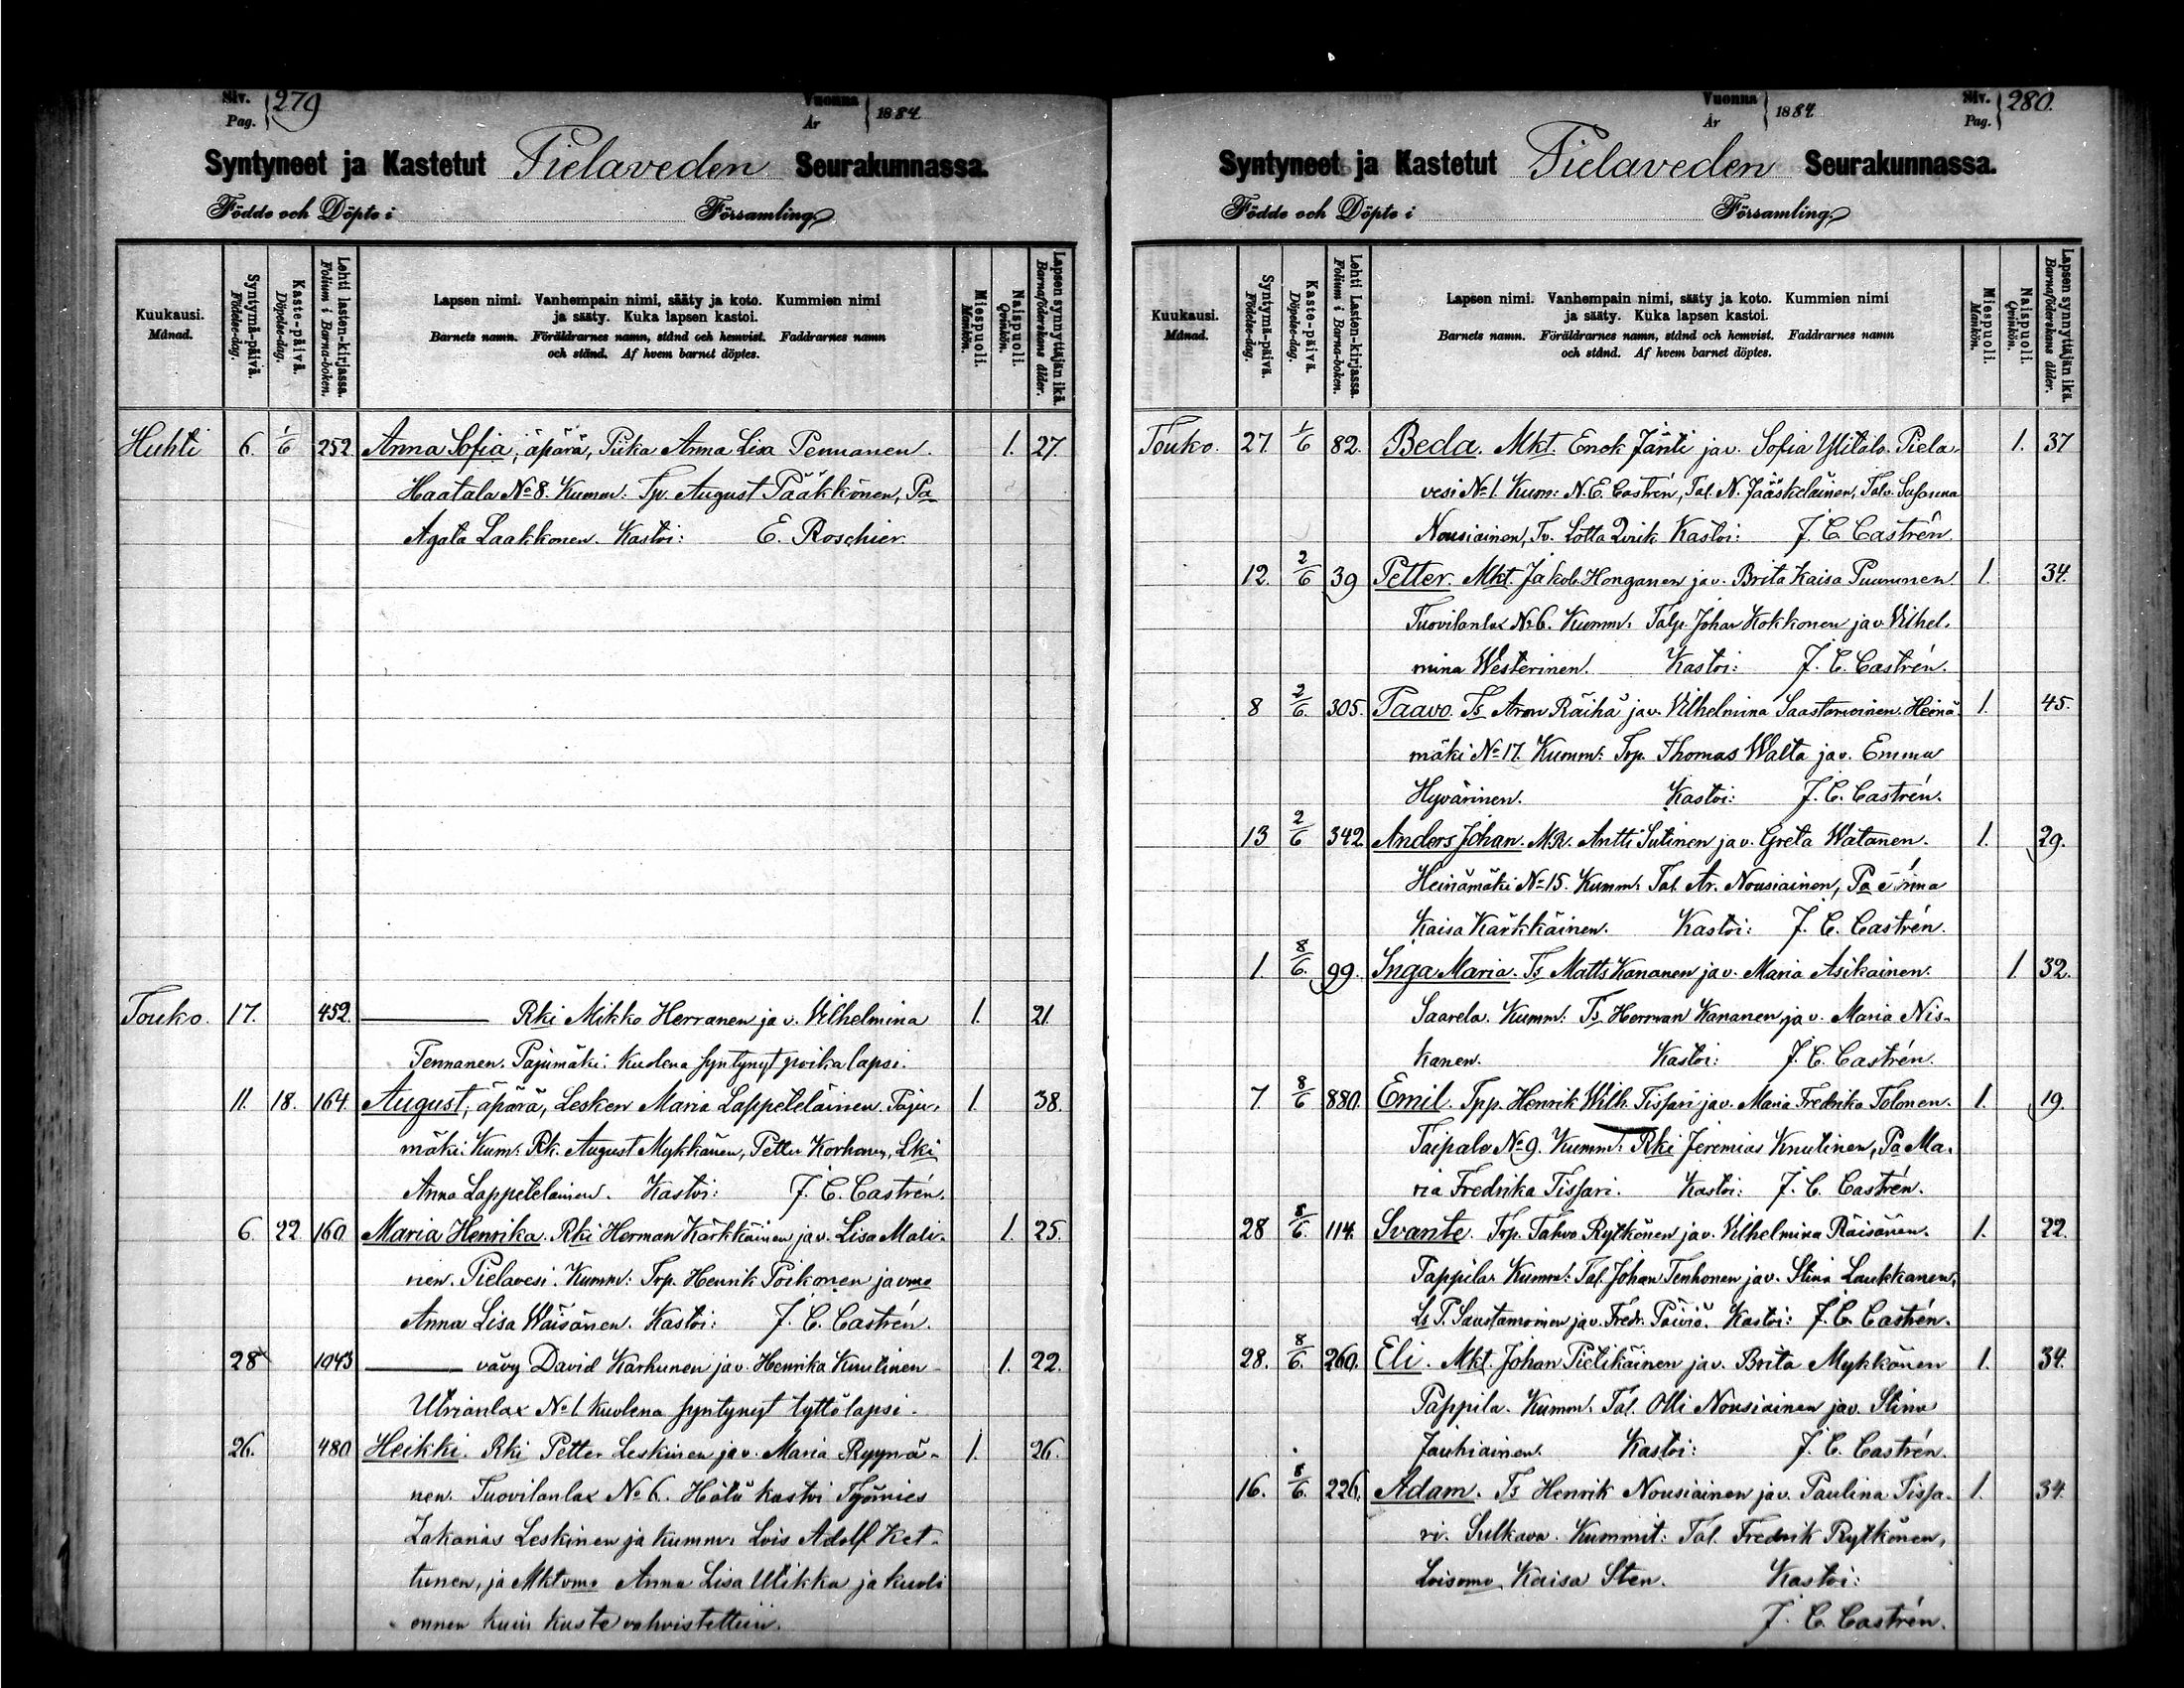 Siv.
Pag. 279
Vuonna
År 1884
Syntyneet ja Kastetut Pielaveden Seurakunnassa.
Födde och Döpte i Församling.
Kuukausi.
Månad.
Syntymä-päivä.
Födelse-dag.
Kaste-päivä.
Döpelse-dag.
Lehti lasten-kirjassa.
Folium i Barna-boken.
Lapsen nimi. Vanhempain nimi, sääty ja koto. Kummien nimi
ja sääty. Kuka lapsen kastoi.
Barnets namn. Föräldrarnes namn, stånd och hemvist. Faddrarnes namn
och stånd. Af hvem barnet döptes.
Miespuoli.
Mankön.
Naispuoli.
Qvinkön.
Lapsen synnyttäjän ikä.
Barnaföderskans ålder.
Huhti 6. 1/6 252 Anna Sofia, äpärä, Piika Anna Lisa Pennanen. 1. 27.
Haatala No 8. Kumm: Tp. August Pääkkönen, Pa
Agata Laakkonen. Kastoi: E. Roschier.
Touko. 17. 452. Rki Mikko Herranen ja v. Vilhelmina 1. 21
Pennanen. Pajumäki. Kuolena syntynyt poika lapsi.
11. 18. 164. August, äpärä, Lesken Maria Lappeteläinen. Paju- 1. 38.
mäki. Kum: Rk. August Mykkänen, Petter Korhonen, Lki
Anna Lappeteläinen. Kastoi: J. C. Castrén.
6. 22. 160 Maria Henrika. Rki Herman Kärkkäinen ja v. Lisa Mali- 1. 25.
nen. Pielavesi. Kumm: Trp. Henrik Poikonen ja vmo
Anna Lisa Wäisänen. Kastoi: J. C. Castrén.
28 1943 vävy David Karhunen ja v. Henrika Knutinen 1. 22.
Utrianlax No 1. kuolena syntynyt tyttölapsi.
26. 480 Heikki. Rki Petter Leskinen ja v. Maria Ryynä- 1. 26.
nen. Tuovilanlax No 6. Hätä kastoi Työmies
Zakarias Leskinen ja kumm. Lois Adolf Ket-
tunen, ja Mktvmo Anna Lisa Utikka ja kuoli
ennen kuin kaste vahvistettiin.
Vuonna
År 1884
Siv.
Pag. 280.
Syntyneet ja Kastetut Pielaveden Seurakunnassa.
Födde och Döpte i Församling.
Kuukausi.
Månad.
Syntymä-päivä.
Födelse-dag.
Kaste-päivä.
Döpelse-dag.
Lehti Lasten-kirjassa.
Folium i Barna-boken.
Lapsen nimi. Vanhempain nimi, sääty ja koto. Kummien nimi
ja sääty. Kuka lapsen kastoi.
Barnets namn. Föräldrarnes namn, stånd och hemvist. Faddrarnes namn
och stånd. Af hvem barnet döptes.
Miespuoli.
Mankön.
Naispuoli.
Qvinkön.
Lapsen synnyttäjän ikä.
Barnaföderskans ålder.
Touko. 27. 1/6 82. Beda. Mkt. Enok Jänti ja v. Sofia Ylitalo. Piela- 1. 37
vesi No 1. Kum: N. E. Castrén, Tal. N. Jääskeläinen, Talv. Sosanna
Nousiainen, Tv. Lotta Qvik Kastoi: J. C. Castrén
12. 2/6 39 Petter. Mkt. Jakob Honganen ja v. Brita Kaisa Puumnen 1. 34.
Tuovilanlax No 6. Kumm: Talp. Johan Kokkonen ja v. Vilhel-
mina Westerinen. Kastoi: J. C. Castrén.
8 2/6. 305. Paavo. Ts Aron Räihä ja v. Vilhelmina Saastamoinen. Heinä- 1. 45.
mäki No 17. Kumm: Trp. Thomas Walta ja v. Emma
Hyvärinen. Kastoi: J. C. Castrén.
13 2/6 342 Anders Johan. M.R. Antti Sutinen ja v. Greta Watanen. 1. 29.
Heinämäki No 15. Kumm: Tal. Ar. Nousiainen, Pa
Kaisa Kärkkäinen. Kastoi: J. C. Castrén.
1. 8/6. 99. Inga Maria. Ts Matts Kananen ja v. Maria Asikainen. 1. 32.
Saarela. Kumm: Ts Herman Kananen ja v. Maria Nis-
kanen. Kastoi: J. C. Castrén.
7. 8/6 880. Emil. Tpp. Henrik Wilh. Tissari ja v. Maria Fredrika Tolonen. 1. 19.
Taipale No 9. Kumm: Rki Jeremias Knutinen, Pa Ma-
ria Fredrika Tissari. Kastoi: J. C. Castrén.
28 8/6. 114. Svante. Trp. Tahvo Rytkönen ja v. Vilhelmina Räisänen. 1. 22.
Pappila. Kumm: Tal. Johan Tenhonen ja v. Stina Laukkanen,
Ls P. Saastamoinen ja v. Fredr. Päiviö. Kastoi: J. C. Castrén.
28. 8/6. 260. Eli. Mkt. Johan Pietikäinen ja v. Brita Mykkänen 1. 34.
Pappila. Kumm: Tal. Olli Nousiainen ja v. Stina
Jauhiainen. Kastoi: J. C. Castrén.
16. 8/6. 226. Adam. Ts Henrik Nousiainen ja v. Paulina Tissa- 1. 34.
ri. Sulkava. Kummit: Tal. Fredrik Rytkönen,
Loisvmo. Kaisa Sten. Kastoi:
J. C. Castrén.